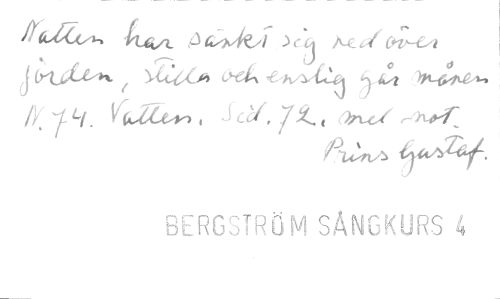 Natten har sänkt sig ned över
jorden, stilla och enslig går månen
N. 74. Vatten. Sid. 72. med not.
Prins Gustaf.
BERGSTRÖM SÅNGKURS 4